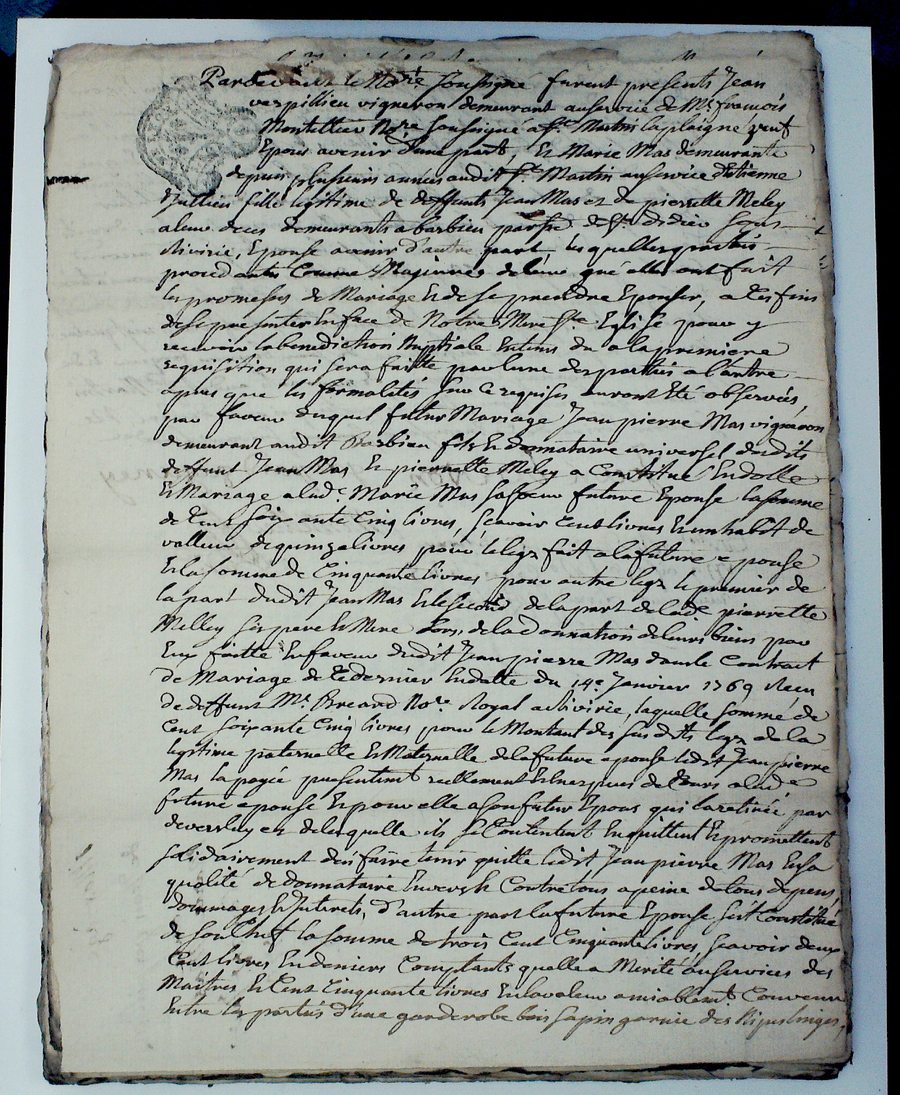 Pardevant le No.re soussigné furent presents Jean
verpillieu vigneron demeurant au service de M.r françois
Montellier No.re soussigné a S.t Martin la plaigne
Epoux avenir d'une part, Et Marie Mas demeurante
depuis plusieurs années audit S.t Martin au service d'Etienne
fille legitime de deffunts Jean Mas et de pierrette Meley
a leur deces demeurants a barbieu parsse de S.t didier sous
Rivirie, Epouse avenir d'autre part, lesquelles parties
procedantes Comme Majeures de leur gré elles ont fait
les promesses de Mariage Et de se prendre Epouser, a ces fins
de se presenter En face de Notre Mere S.te Eglise pour y
recevoir la benediction Nuptiale a la premiere
requisition qui sera faitte par l'une des parties a l'autre
apres que les formalités sur ce requises auront Eté observées
par faveur duquel futur Mariage Jean pierre Mas vigneron
demeurant audit Barbieu fils Et donnataire universel desdits
deffunt Jean Mas Et pierrette Meley a Constitué En dotte
Et Mariage a lad.e Marie Mas sa sœur future Epouse la somme
de Cent soixante Cinq livres, scavoir Cent livres Et un habit de
valleur de quinze livres pour le legz fait a la future epouse
Et la somme de Cinquante livres pour autre legz le premier de
la part dudit Jean Mas Et le second de la part de lad.e pierrette
Melley ses pere Et Mere lors de la donnation de leurs biens par
Eux faitte En faveur dudit Jean pierre Mas dans le Contract
de Mariage de Ce dernier En datte du 14.e Janvier 1769 Receu
de deffunt M.r Breard No.re Royal a Riviriè, laquelle somme de
Cent soixante Cinq livres pour le Montant des susdits legz de la
legitime paternelle Et Maternelle de la future epouse ledit Jean pierre
Mas la payée presentemt reellement Et En especes de Cours a lad.e
future epouse Et pour elle a son futur Epoux qui la retirée par
devers luy et de laquelle ils se Contentent En quittent Et promettent
solidairement d'en faire tenir quitte ledit Jean pierre Mas En sa
qualité de donnataire Envers Et Contre tous a peine de tous depens
dommages Et Interets, d'autre part la future Epouse s'est Constitué
de son Chef la somme de trois Cent Cinquante livres scavoir deux
Cent livres En deniers Comptants quelle a Merité au services des
Maitres Et Cent Cinquante livres En la valeur amiablemt Convenue
Entre les parties d'une garderobe bois sapin garnie des linges,